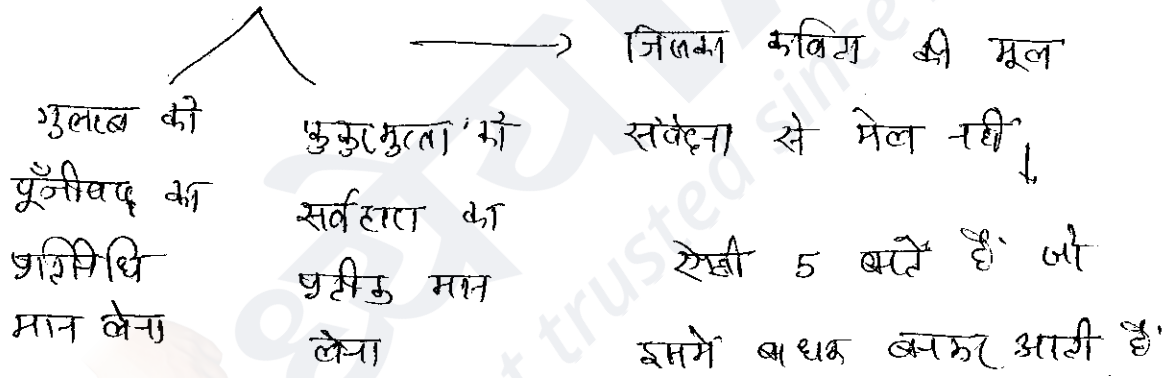 गुलाब को
पूँजीवाद का
प्रतिनिधि
मान लेना
कुकुरमुत्ता को
सर्वहारा का
प्रतीक मान
लेना
→ जिसका कविता की मूल
संवेदना से मेल नहीं ↓
ऐसी 5 बातें हैं जो
इसमें बाधक बनकर आती हैं
trusted since